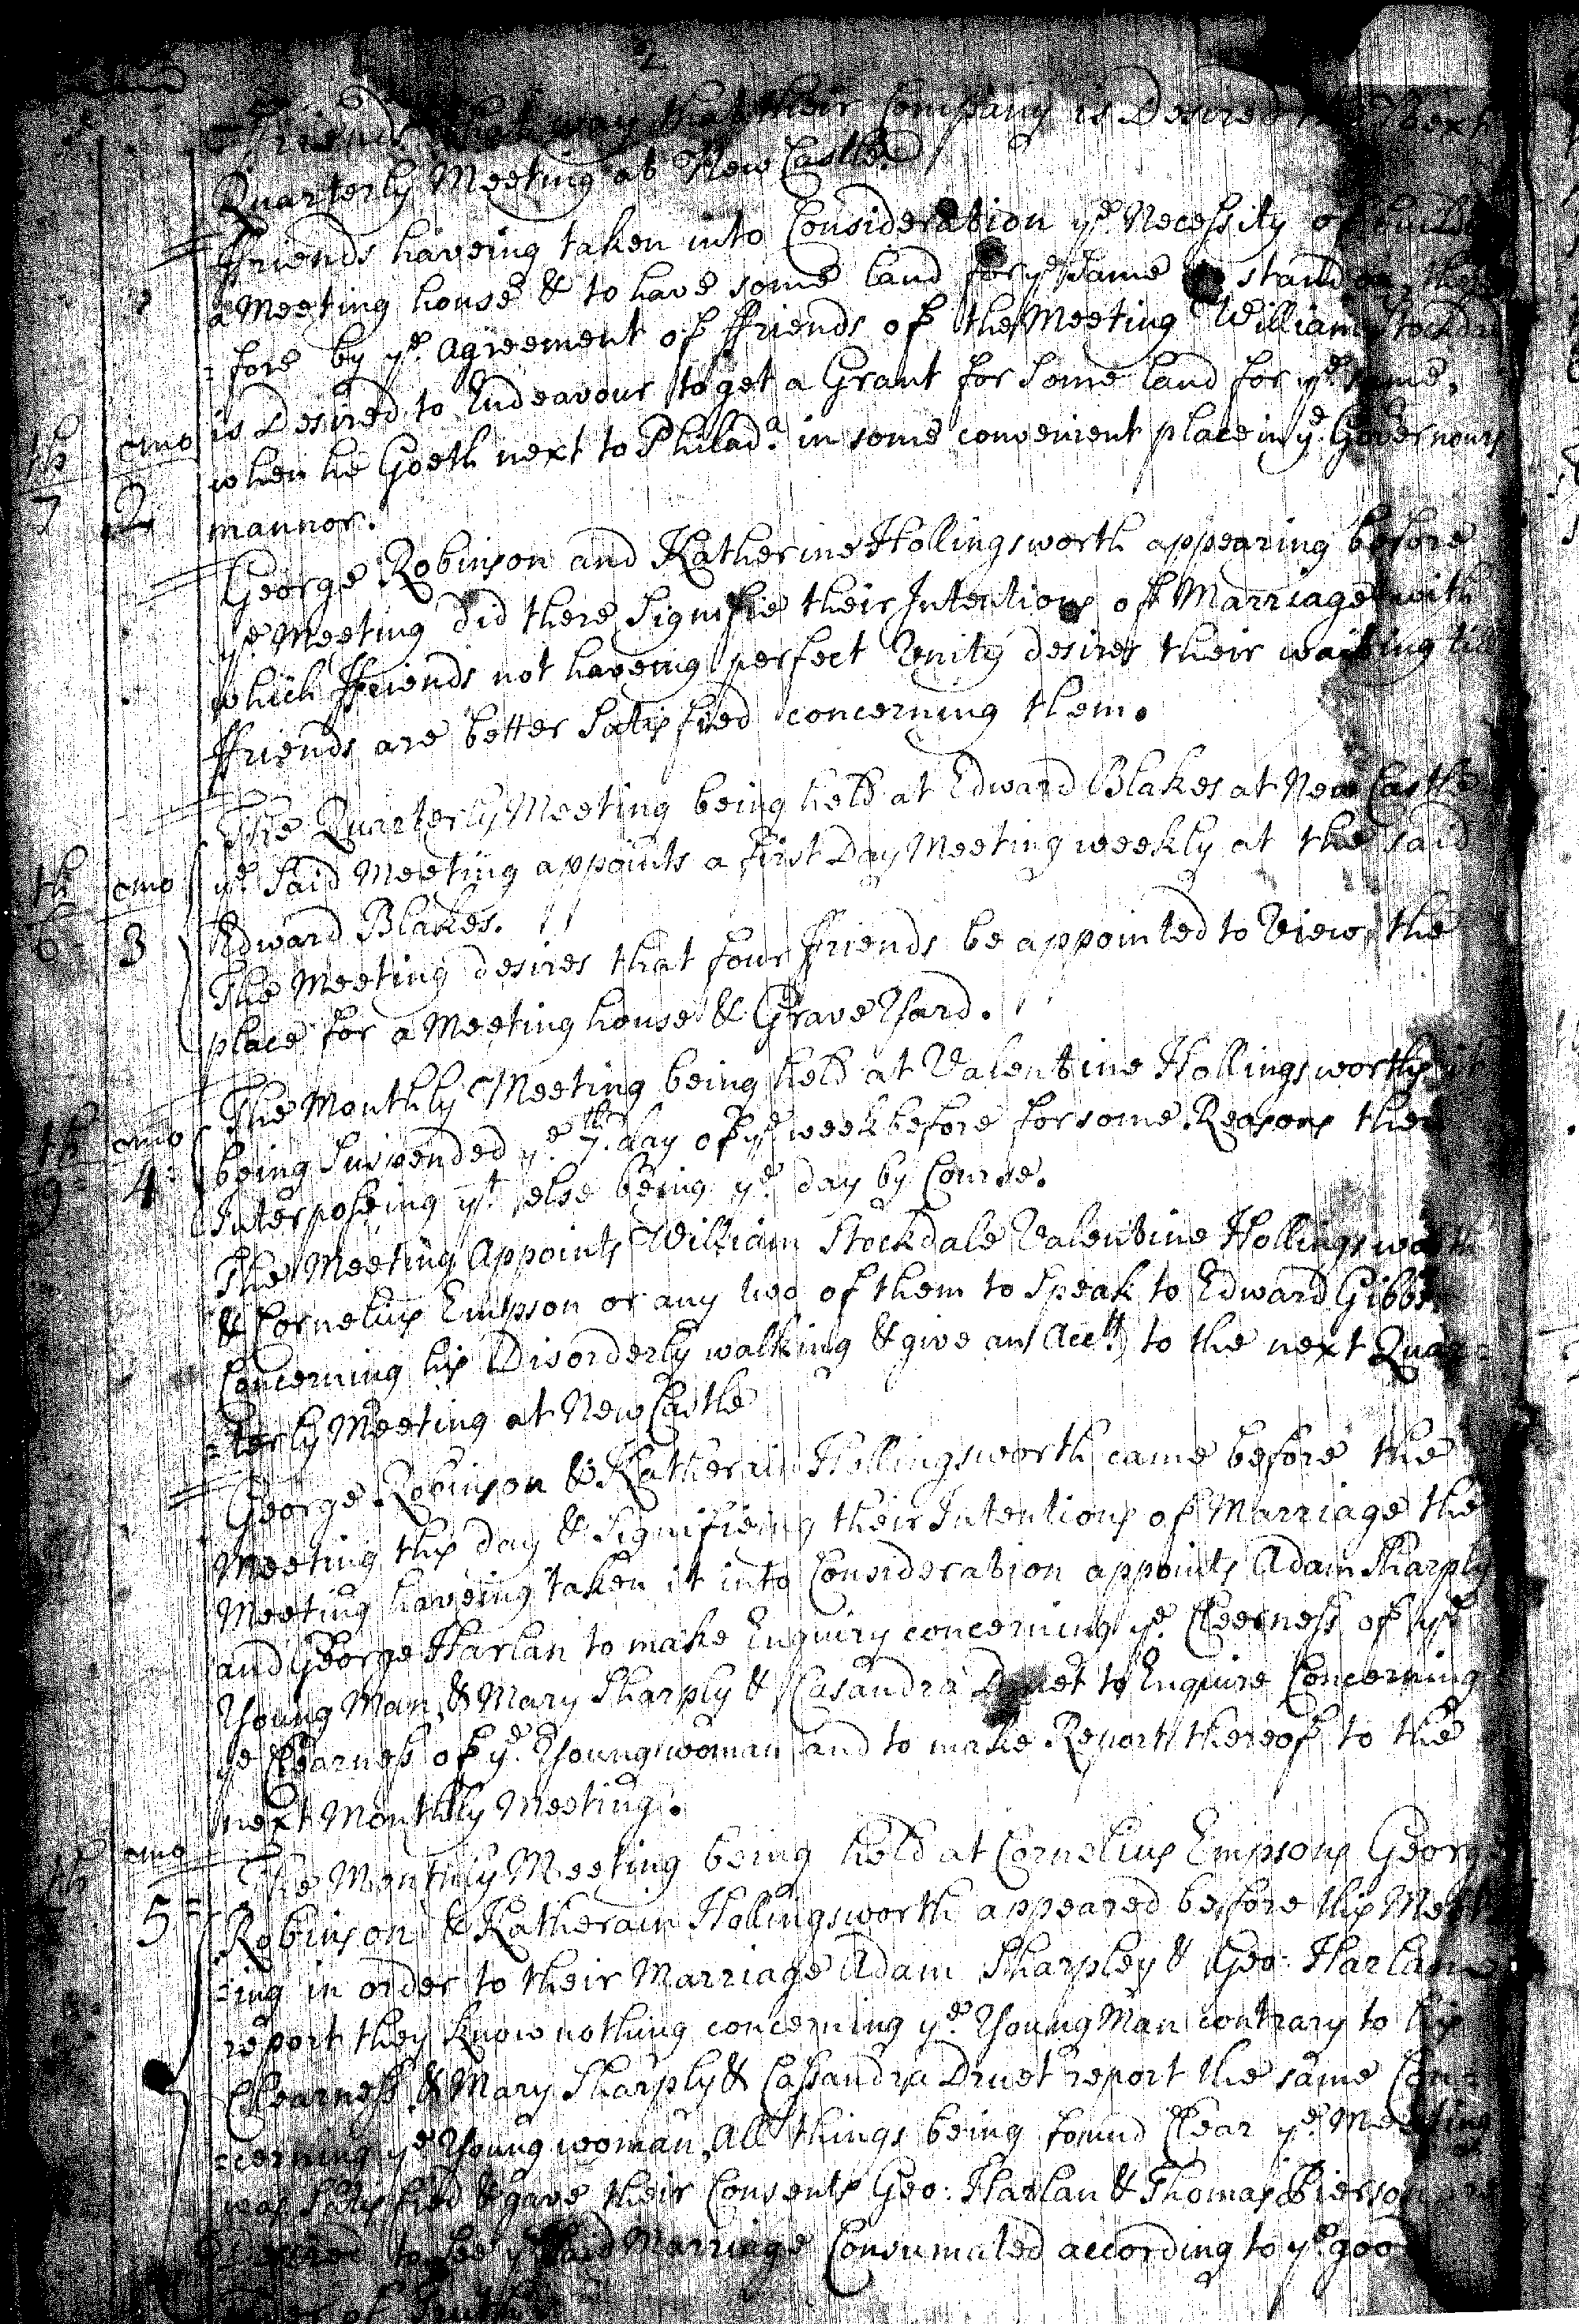 2
Friends that way that their Company is Desired next
Quarterly Meeting at New Castle.
ffriends haveing taken into Consideration ye. Necessity of
a Meeting house & to have some land for ye same to stand on, there
=fore by ye. agreement of ffriends of the Meeting William Stockdale
is Desired to Endeavour to get a Grant for some land for ye. same,
when he Goeth next to Philad.a in some convenient place in ye. Governours
th omo
7 2 mannor.
George Robinson and Katherine Hollingsworth appearing before
ye. Meeting did there Signifie their Intentions of Marriage with
which ffriends not haveing perfect Unity desires their waiting till
ffriends are better Satisfied concerning them.
The Quarterly Meeting being held at Edward Blakes at New Castle
ye. Said Meeting appoints a first Day Meeting weekly at the said
th omo
6 3 Edward Blakes.
The Meeting desires that four ffriends be appointed to View the
place for a Meeting house & Grave Yard.
The Monthly Meeting being held at Valentine Hollingsworths it
th omo
9 4 being Suspended ye. 7.th day of ye week before for some Reasons then
Interposeing yt. else being ye. day by Course.
The Meeting Appoints William Stockdale Valentine Hollingsworth
& Cornelius Empson or any two of them to Speak to Edward Gibbs
Concerning his Disorderly walking & give an Acctt. to the next Quar=
=terly Meeting at New Castle
George Robinson & Katherain Hollingsworth came before the
Meeting this day & Signifieing their Intentions of Marriage the
Meeting haveing taken it into Consideration appoints Adam Sharply
and George Harlan to make Enquiry concerning ye. Cleerness of ye
Young Man, & Mary Sharply & Casandra Druet to Enquire Concerning
ye Clearness of ye. Young woman and to make Report thereof to the
next Monthly Meeting.
th omo
5 The Monthly Meeting being held at Cornelius Empsons George
Robinson & Katherain Hollingsworth appeared before this Meet
=ing in order to their Marriage Adam Sharpley & Geo: Harlan
report they know nothing concerning ye. Young Man contrary to his
Clearness & Mary Sharply & Cassandra Druet report the same Con=
=cerning ye Young woman, All things being found Clear ye. Meeting
was Satisfied & gave their Consents Geo: Harlan & Thomas Pierson are
Desired to see ye Said Marriage Consumated according to ye. good
order of Truth.